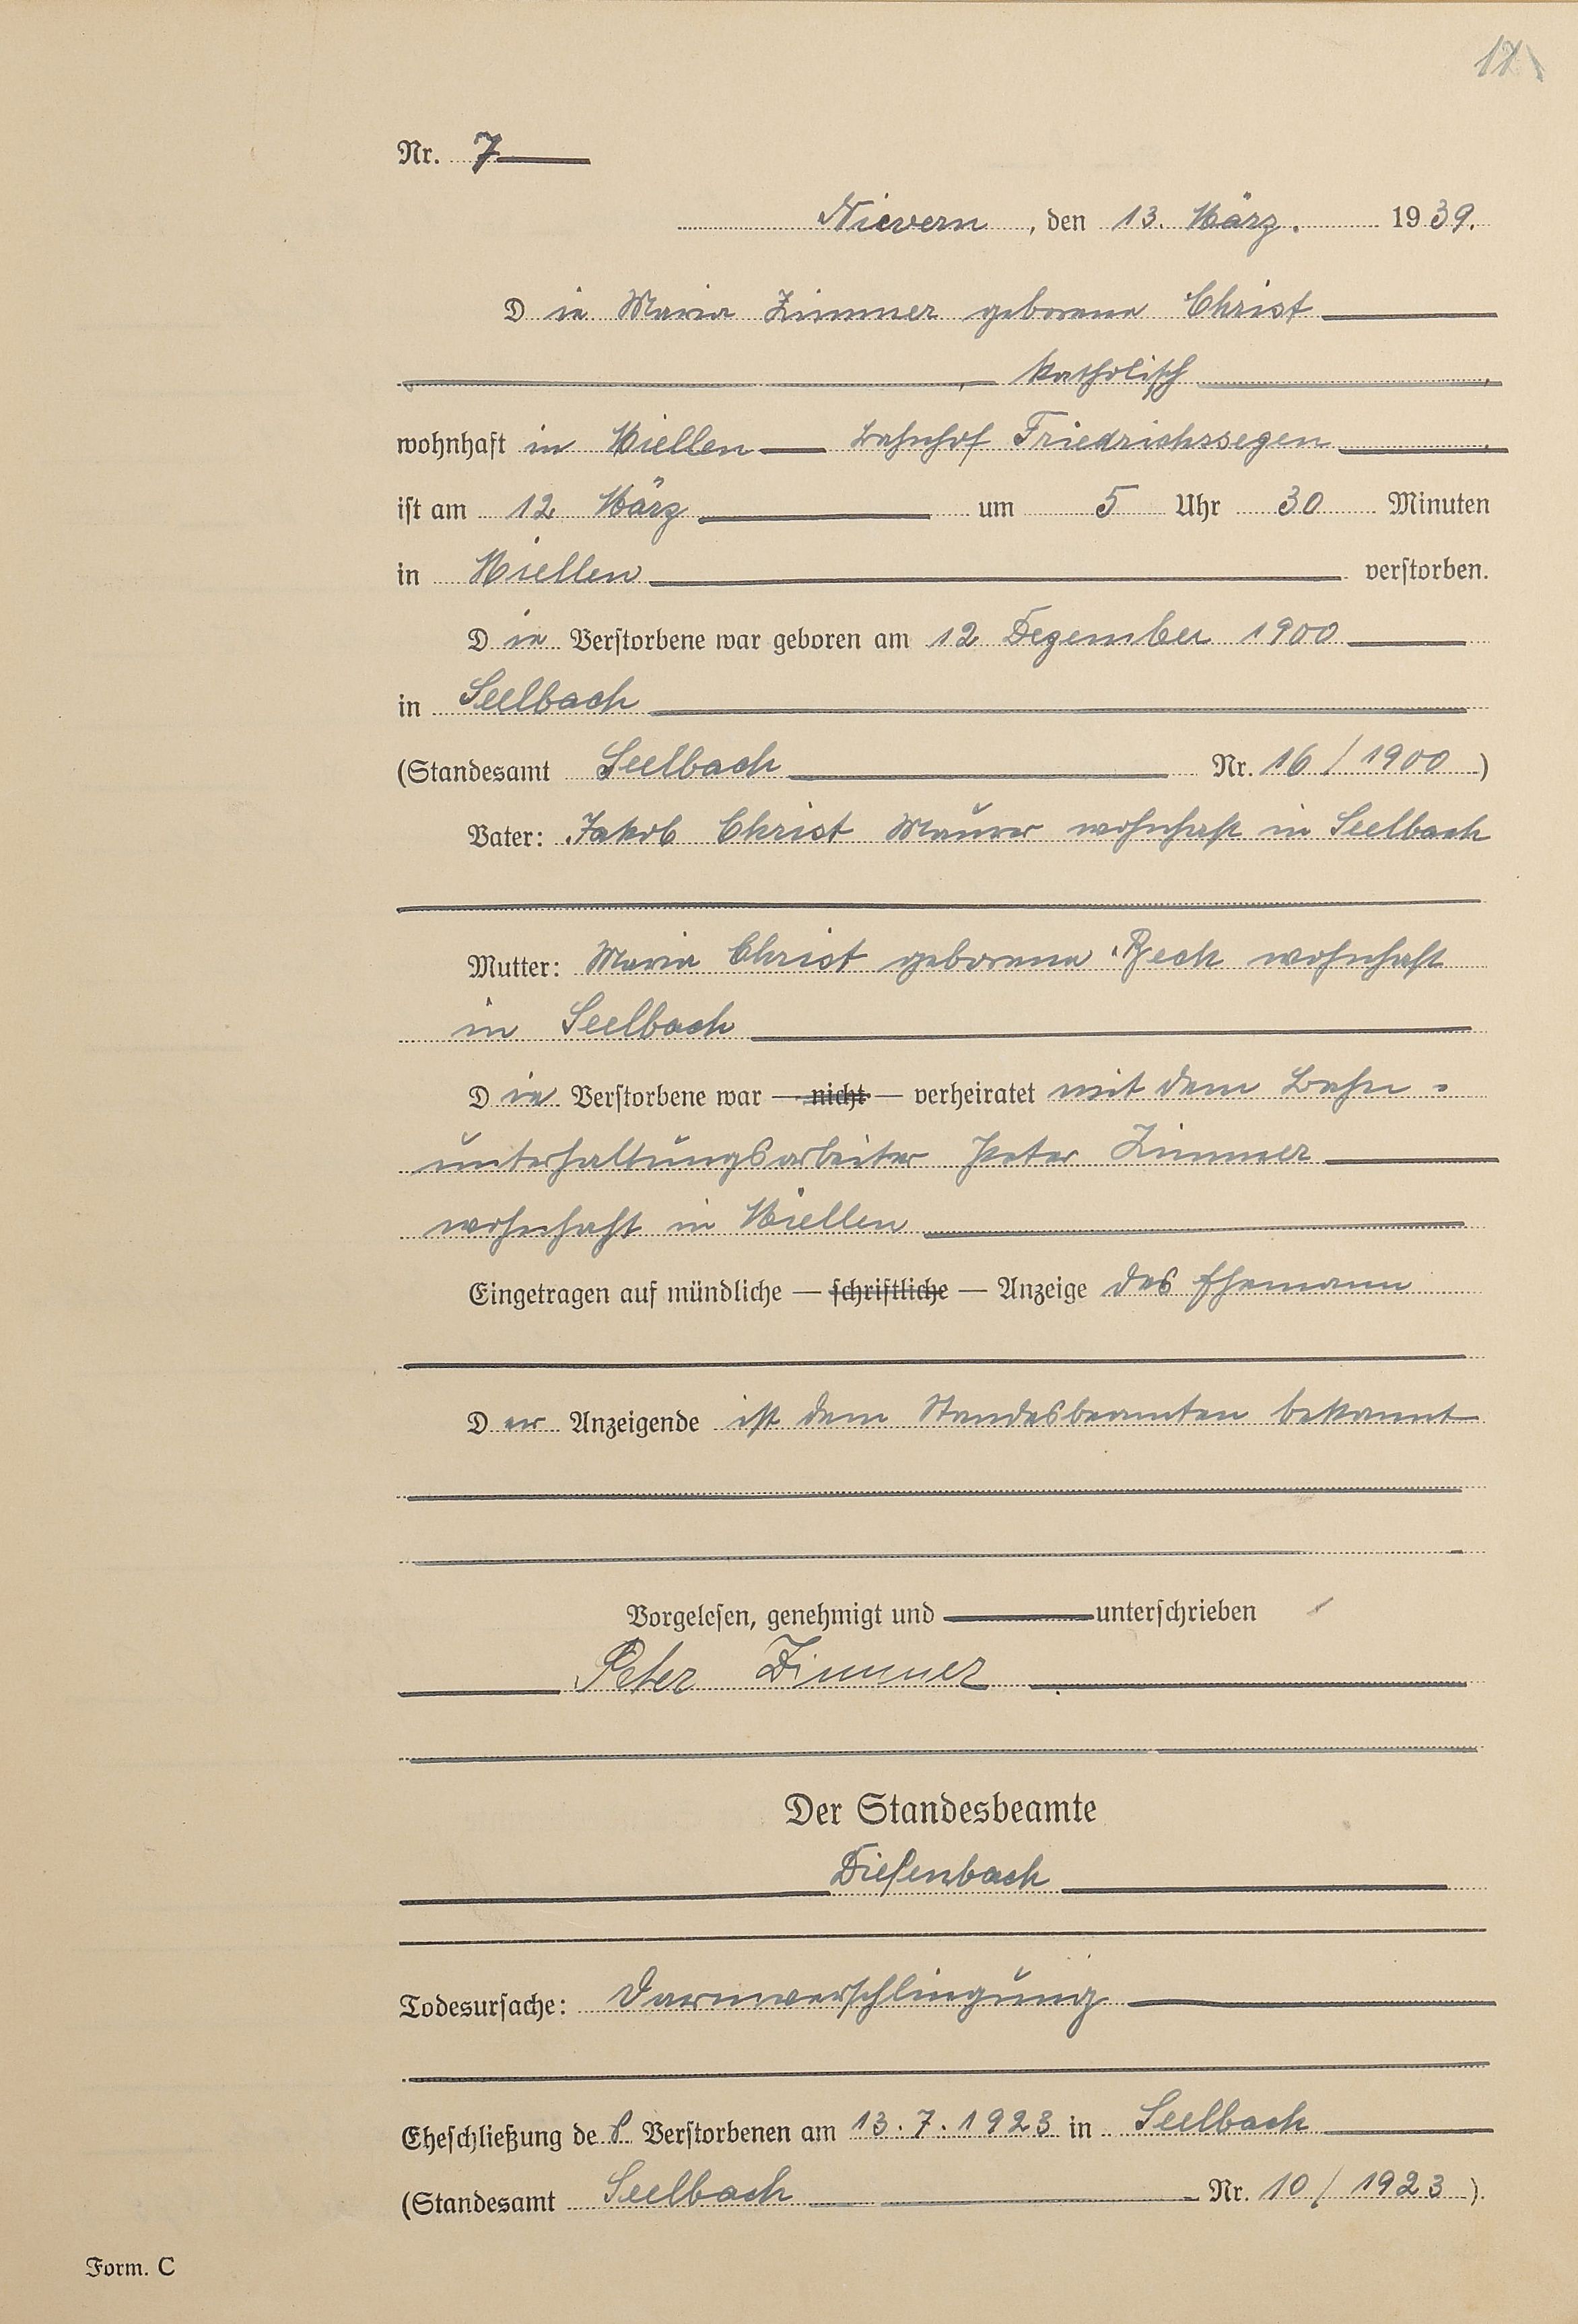 Nr. 7
Nievern, den 13. März. 1939.
Die Maria Zimmer geborene Christ
, katholisch,
wohnhaft in Miellen Bahnhof Friedrichssegen,
ist am 12. März um 5 Uhr 30 Minuten
in Miellen verstorben.
Die Verstorbene war geboren am 12 Dezember 1900
in Seelbach
(Standesamt Seelbach Nr. 16 / 1900)
Vater: Jakob Christ Maurer wohnhaft in Seelbach
Mutter: Maria Christ geborene wohnhaft
in Seelbach
Die Verstorbene war — nicht — verheiratet mit dem Bahn=
unterhaltungsarbeiter Peter Zimmer
wohnhaft in Miellen
Eingetragen auf mündliche — schriftliche — Anzeige des Ehemann
Der Anzeigende ist dem Standesbeamten bekannt
Vorgelesen, genehmigt und unterschrieben
Peter Zimmer
Der Standesbeamte
Diefenbach
Todesursache: Darmverschlingung
Eheschließung der Verstorbenen am 13.7.1923 in Seelbach
(Standesamt Seelbach Nr. 10 / 1923).
Form. C